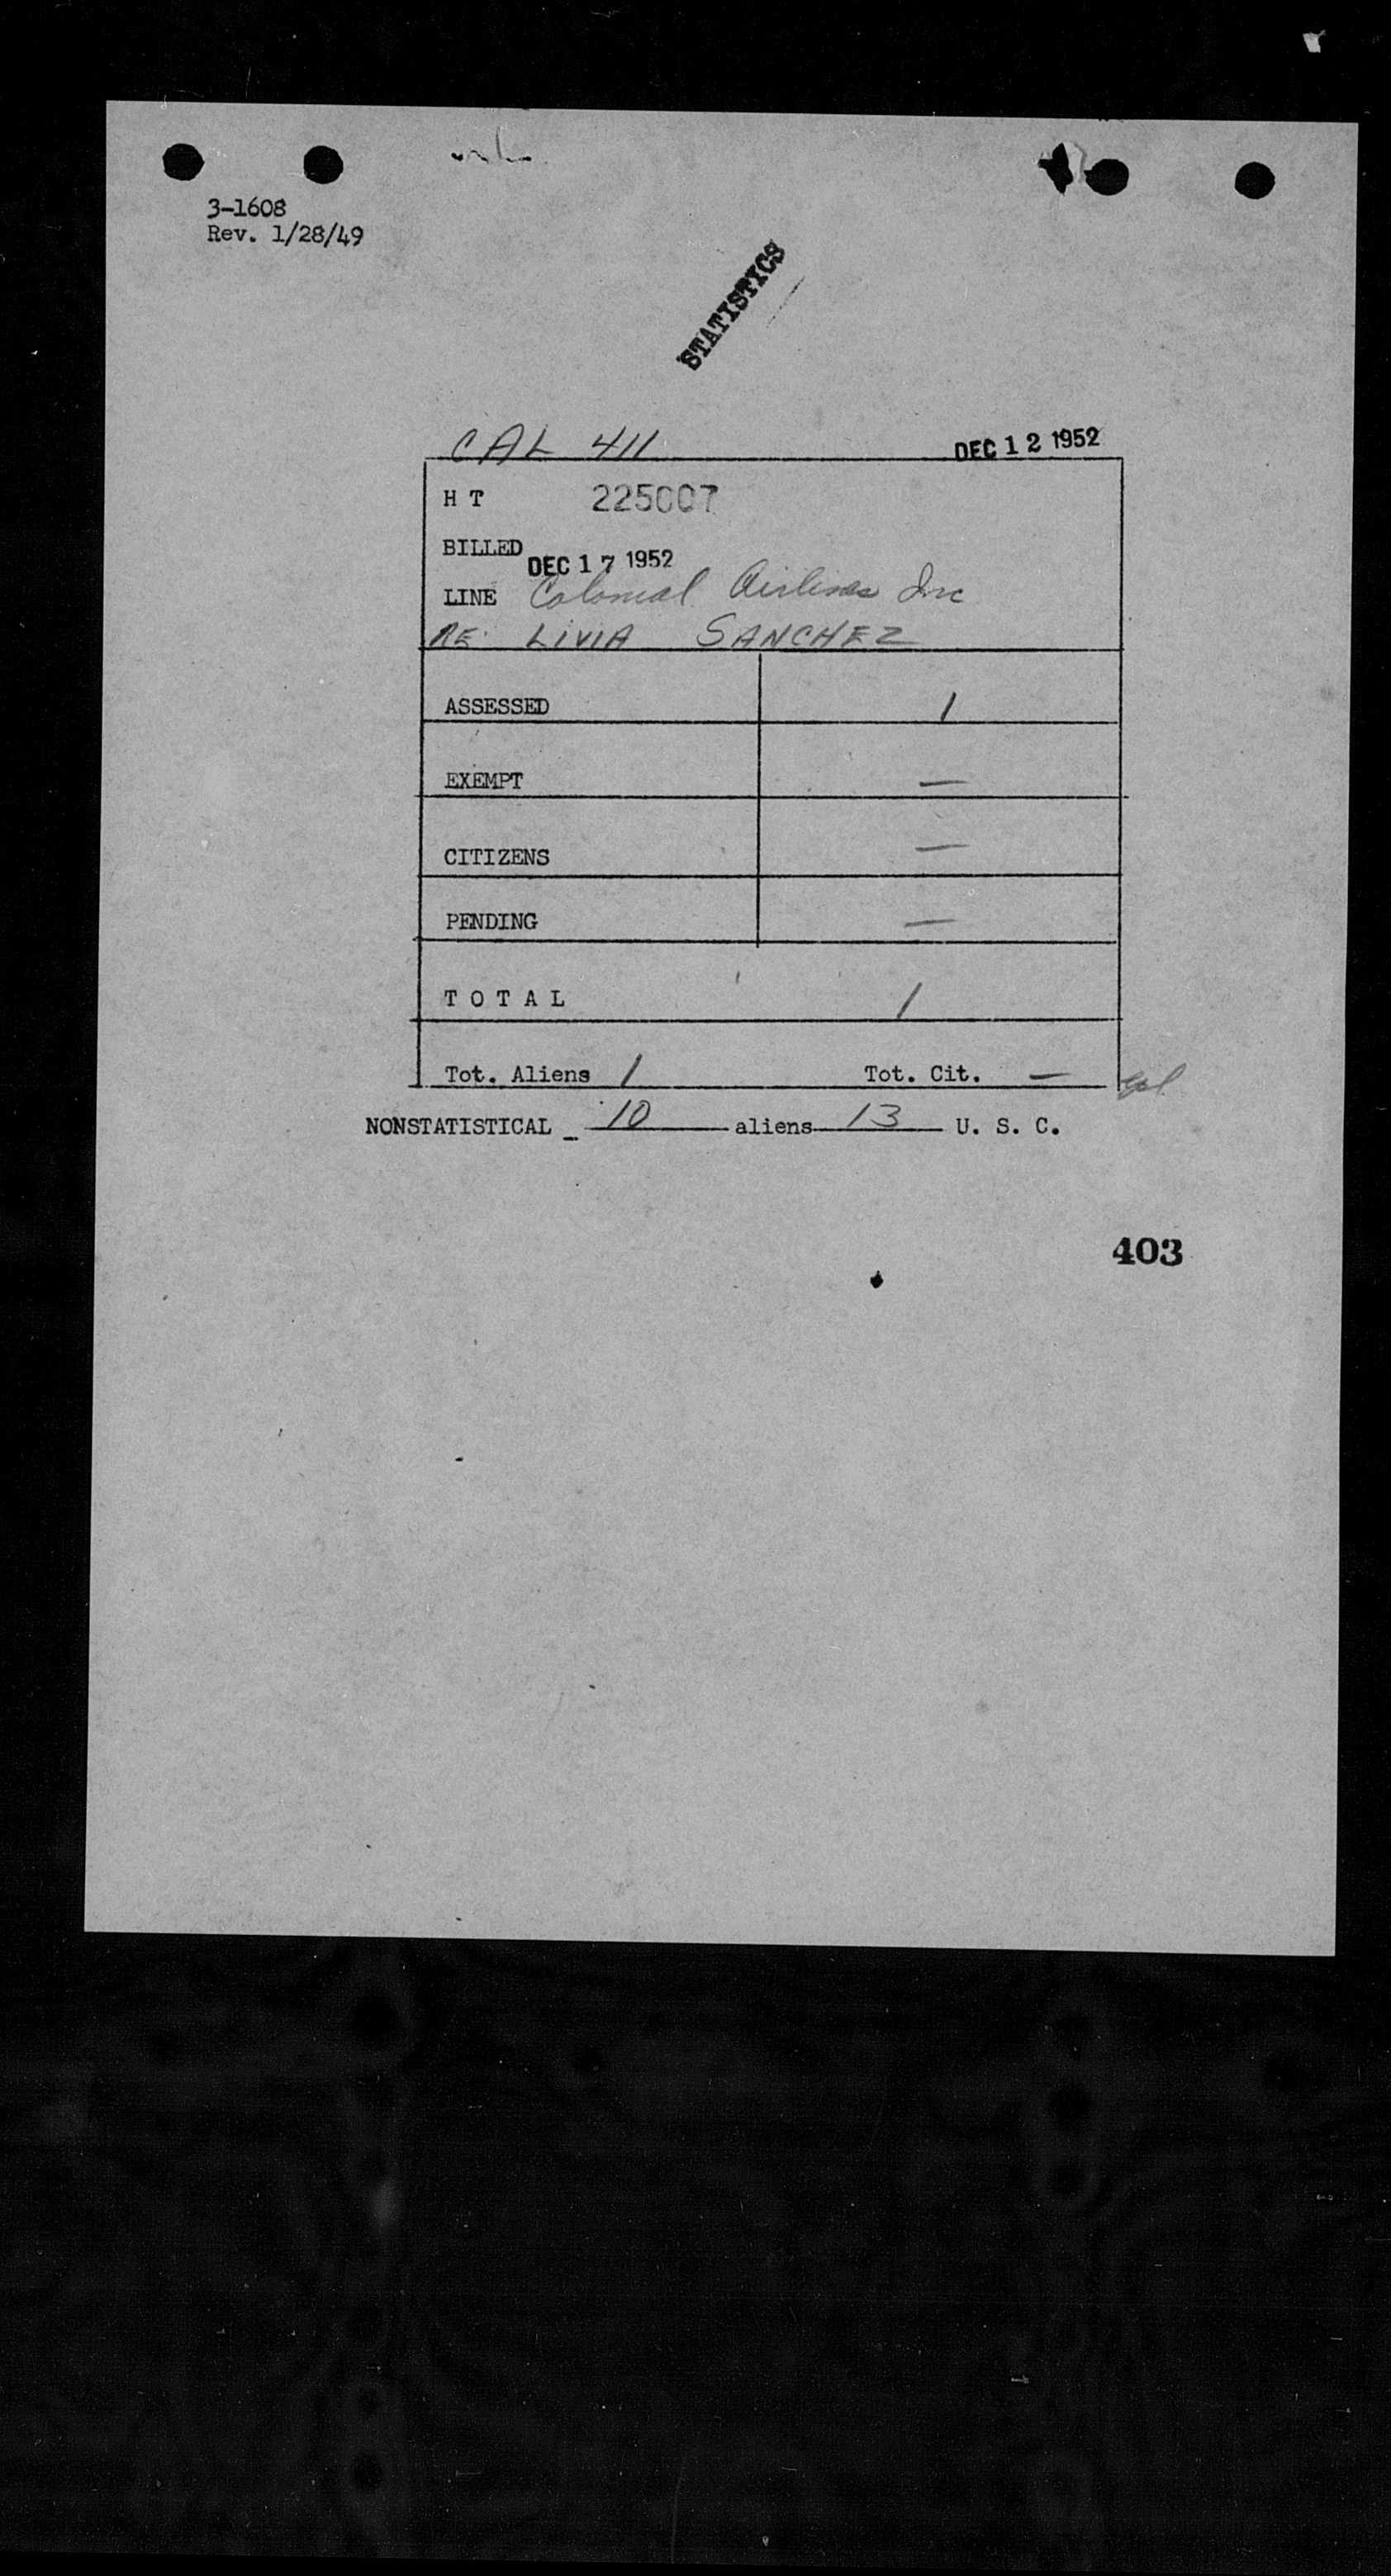 3-1608
Rev. 1/28/49
STATISTICS
CAL 411 DEC 12 1952
H T 225007
BILLED DEC 17 1952
LINE Colonial Airlines Inc
RE: LIVIA SANCHEZ
ASSESSED 1
EXEMPT —
CITIZENS —
PENDING —
T O T A L 1
Tot. Aliens 1 Tot. Cit. —
NONSTATISTICAL _ 10 aliens 13 U. S. C.
403